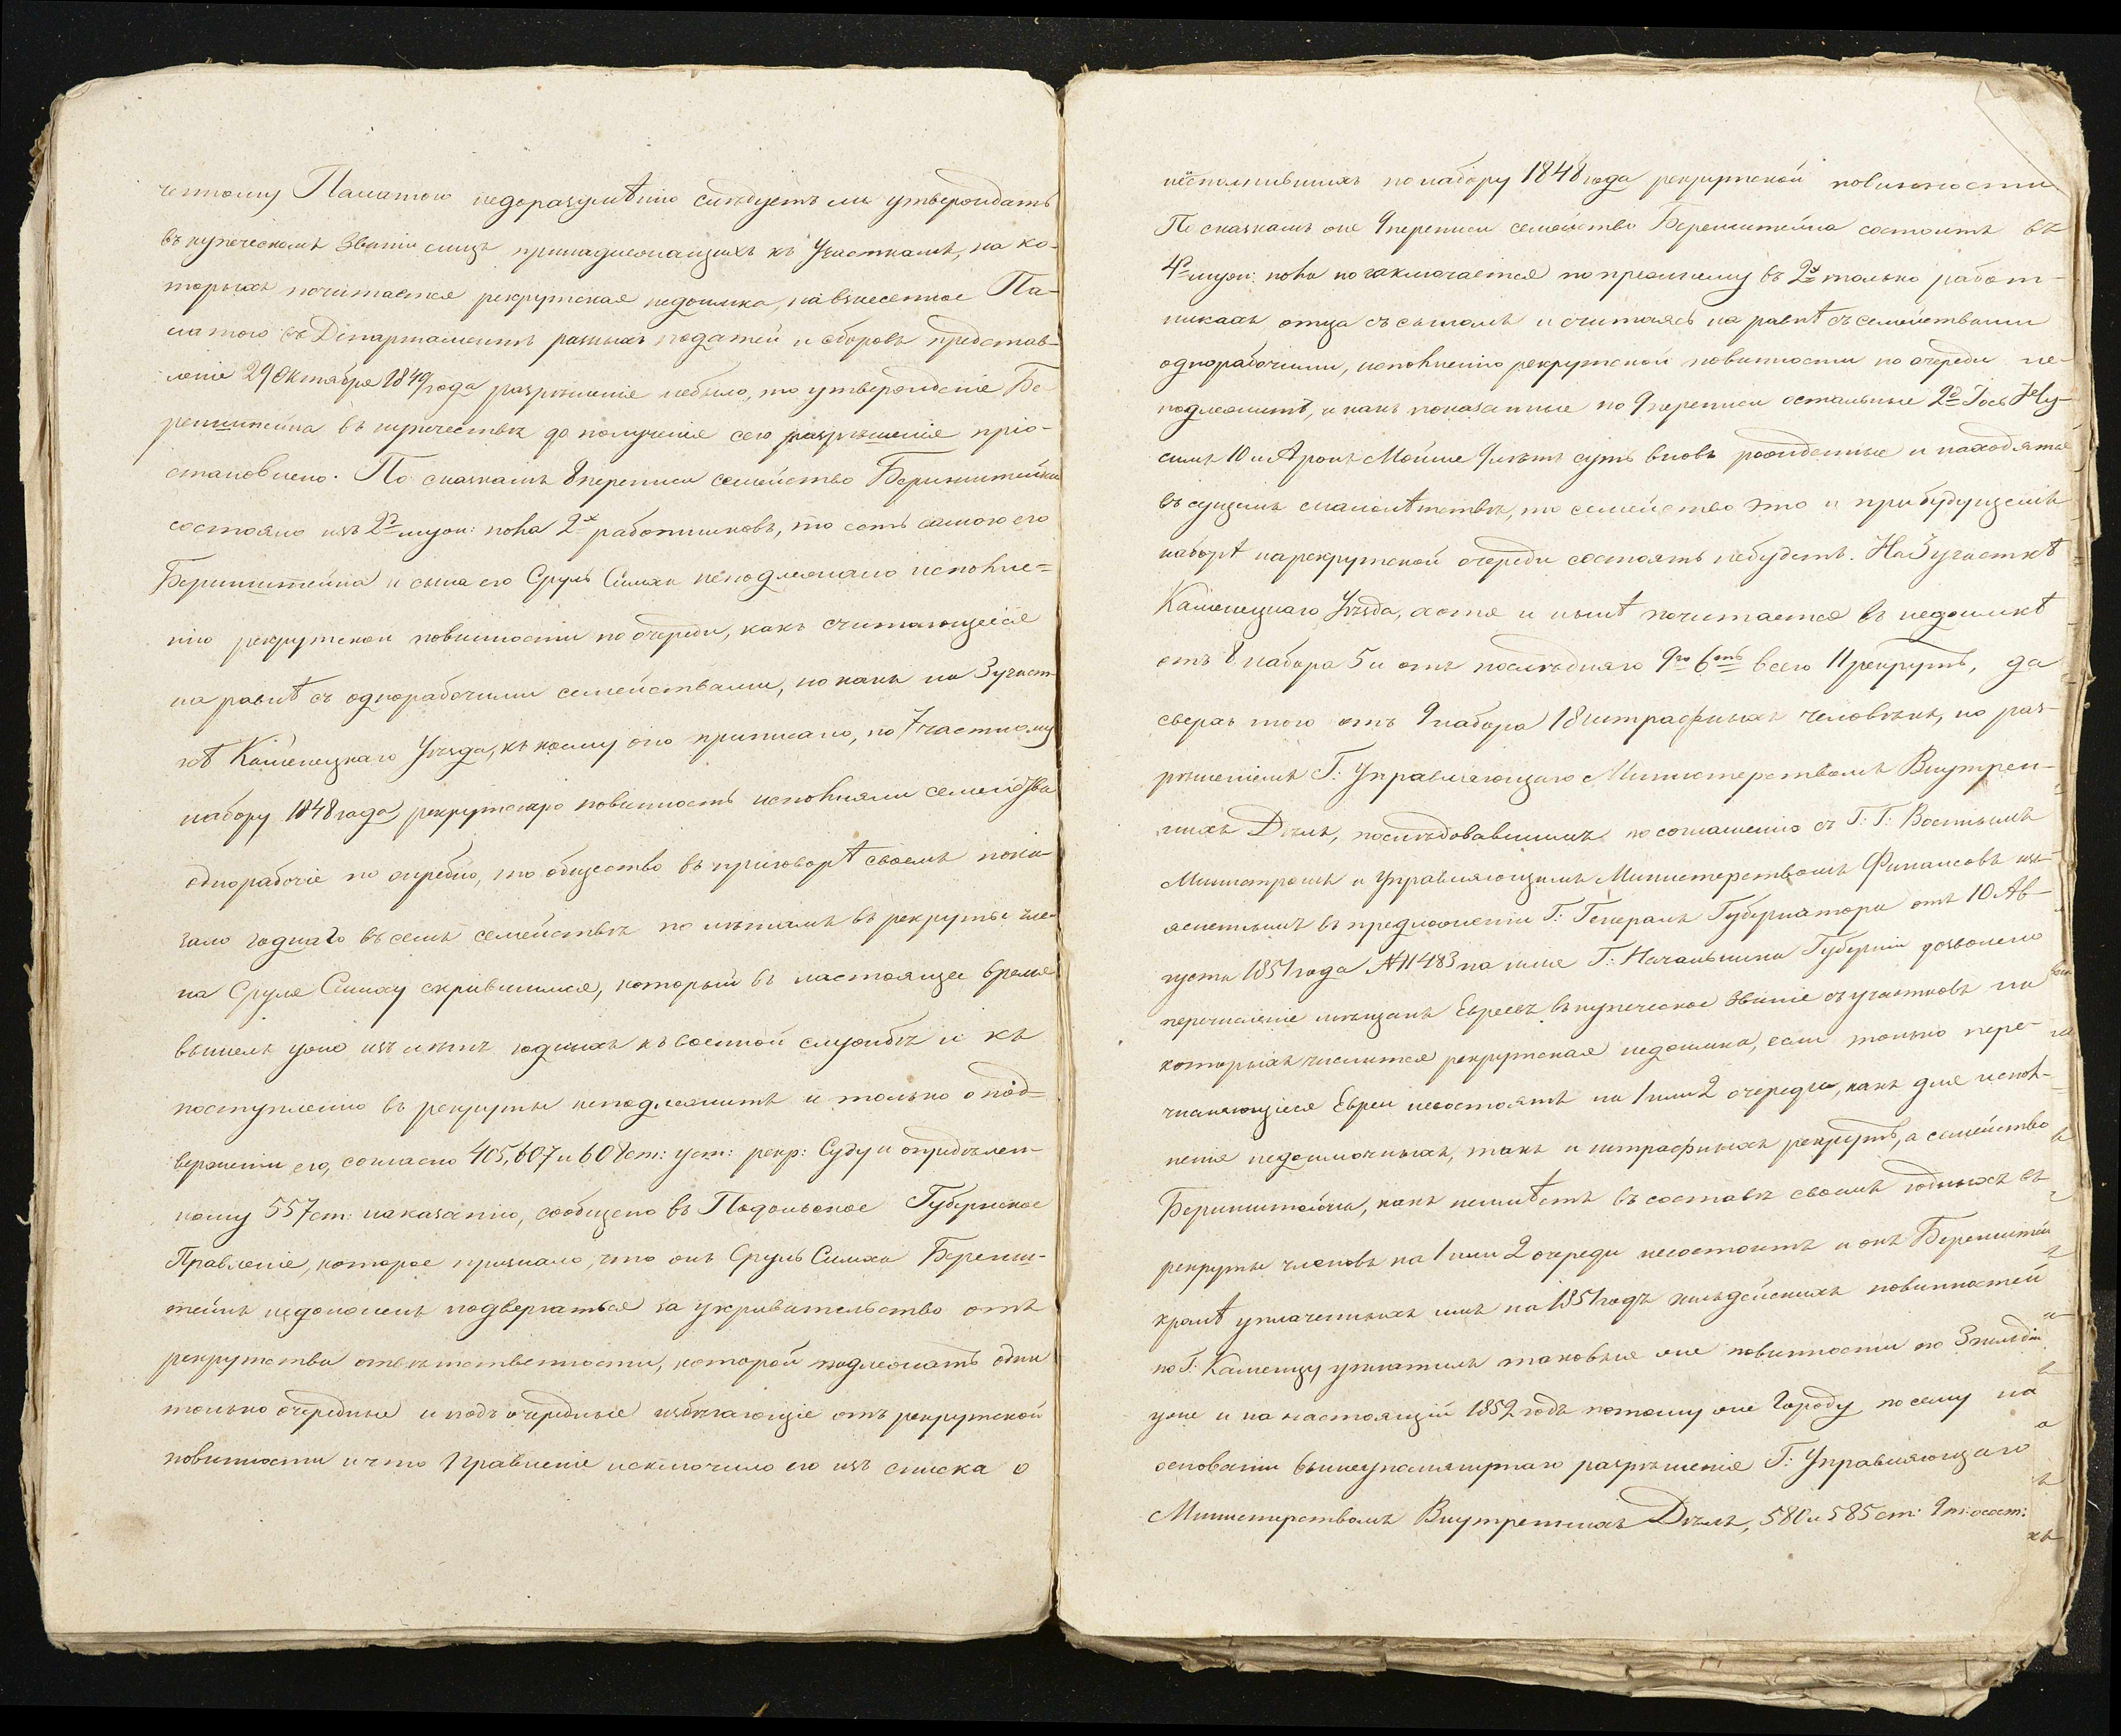 ченному Палатою недоразумѣнію слѣдуетъ ли утверждать
въ купеческомъ званіи лицъ принадлежащихъ къ Участкамъ, на ко-
торыхъ почитается рекрутская недоимка, на взнесенное Па-
латою въ Департаментъ разныхъ податей и сборовъ представ-
леніе 29 Октября 1849 года разрѣшенія небыло, то утвержденіе Бе-
ренштейна въ купечествѣ до полученія сего разрѣшенія пріо-
становлено. По сказкамъ 8 переписи семейство Беринштейна
состояло изъ 2х муж: пола 2х работниковъ, то есть самого его
Беринштейна и сына его Сруль Симхи неподлежало исполне=
нію рекрутской повинности по очереди, какъ считающееся
на равнѣ съ однорабочими семействами, но какъ на 3 участ-
кѣ Каменецкаго Уѣзда, къ коему оно приписано, по 7 частному
набору 1848 года рекрутскую повинность исполняли семейства
однорабочіе по жребію, то общество въ приговорѣ своемъ пока-
зало годнаго въ семъ семействѣ по лѣтамъ въ рекруты чле-
на Сруля Симху скрывшимся, который въ настоящее время
вышелъ уже изъ лѣтъ годныхъ къ военной службѣ и къ
поступленію въ рекруты неподлежитъ и только о под=
верженіи его, согласно 405, 607 и 608 ст: уст: рекр: Суду и опредѣлен-
ному 557 ст: наказанію, сообщено въ Подольское Губернское
Правленіе, которое признало, что онъ Сруль Симха Беренш-
тейнъ недолженъ подвергаться за укривательство отъ
рекрутства отвѣтственности, которой подлежатъ одни
только очередные и подъ очередные избѣгающіе отъ рекрутской
повинности и что Правленіе исключило его изъ списка о
неисполнившихъ по набору 1848 года рекрутской повинности
По сказкамъ же 9 переписи семейство Беренштейна состоитъ въ
4х муж: пола но заключается по прежнему въ 2х только работ-
никахъ отца съ сыномъ и считаясь на равнѣ съ семействами
однорабочими, исполненію рекрутской повинности по очереди не-
подлежитъ, и какъ показанные по 9 переписи остальные 2е Іось Ну-
симъ 10 и Аронъ Мойше 9 лѣтъ суть вновь рожденные и находятся
въ сущемъ малолѣтствѣ, то семейство это и при будущемъ
наборѣ на рекрутской очереди состоять небудетъ. На 3 участкѣ
Каменецкаго Уѣзда, хотя и нынѣ почитается въ недоимкѣ
отъ 8 набора 5 и отъ послѣдняго 9го 6ть всего 11 рекрутъ, да
сверхъ того отъ 9 набора 18 штрафныхъ человѣкъ, но раз-
рѣшеніемъ Г: Управляющаго Министерствомъ Внутрен-
нихъ Дѣлъ, послѣдовавшимъ по соглашенію съ Г: Г: Военнымъ
Министромъ и Управляющимъ Министерствомъ Финансовъ изъ-
ясненнымъ въ предложеніи Г: Генералъ Губернатора отъ 10 Ав-
густа 1851 года № 11483 на имя Г: Начальника Губерніи дозволено
перечисленіе мѣщанъ Евреевъ въ купеческое званіе съ участковъ на
которыхъ числится рекрутская недоимка, если только пере-
числяющіеся Евреи несостоятъ на 1 или 2 очереди, какъ для испол-
ненія недоимочныхъ, такъ и штрафныхъ рекрутъ, а семейство
Беринштейна, какъ неимѣетъ въ составѣ своемъ годныхъ въ
рекруты членовъ на 1 или 2 очереди несостоитъ и онъ Беренштейн
кромѣ уплаченныхъ имъ на 1851 годъ гильдейскихъ повинностей
по Г: Каменцу, уплатилъ таковыя же повинности по 3 гильдіи
уже и на настоящій 1852 годъ потому же Городу, по сему на
основаніи вышеупомянутаго разрѣшенія Г: Управляющаго
Министерствомъ Внутреннихъ Дѣлъ, 580 и 585 ст: 9 т: о сост: